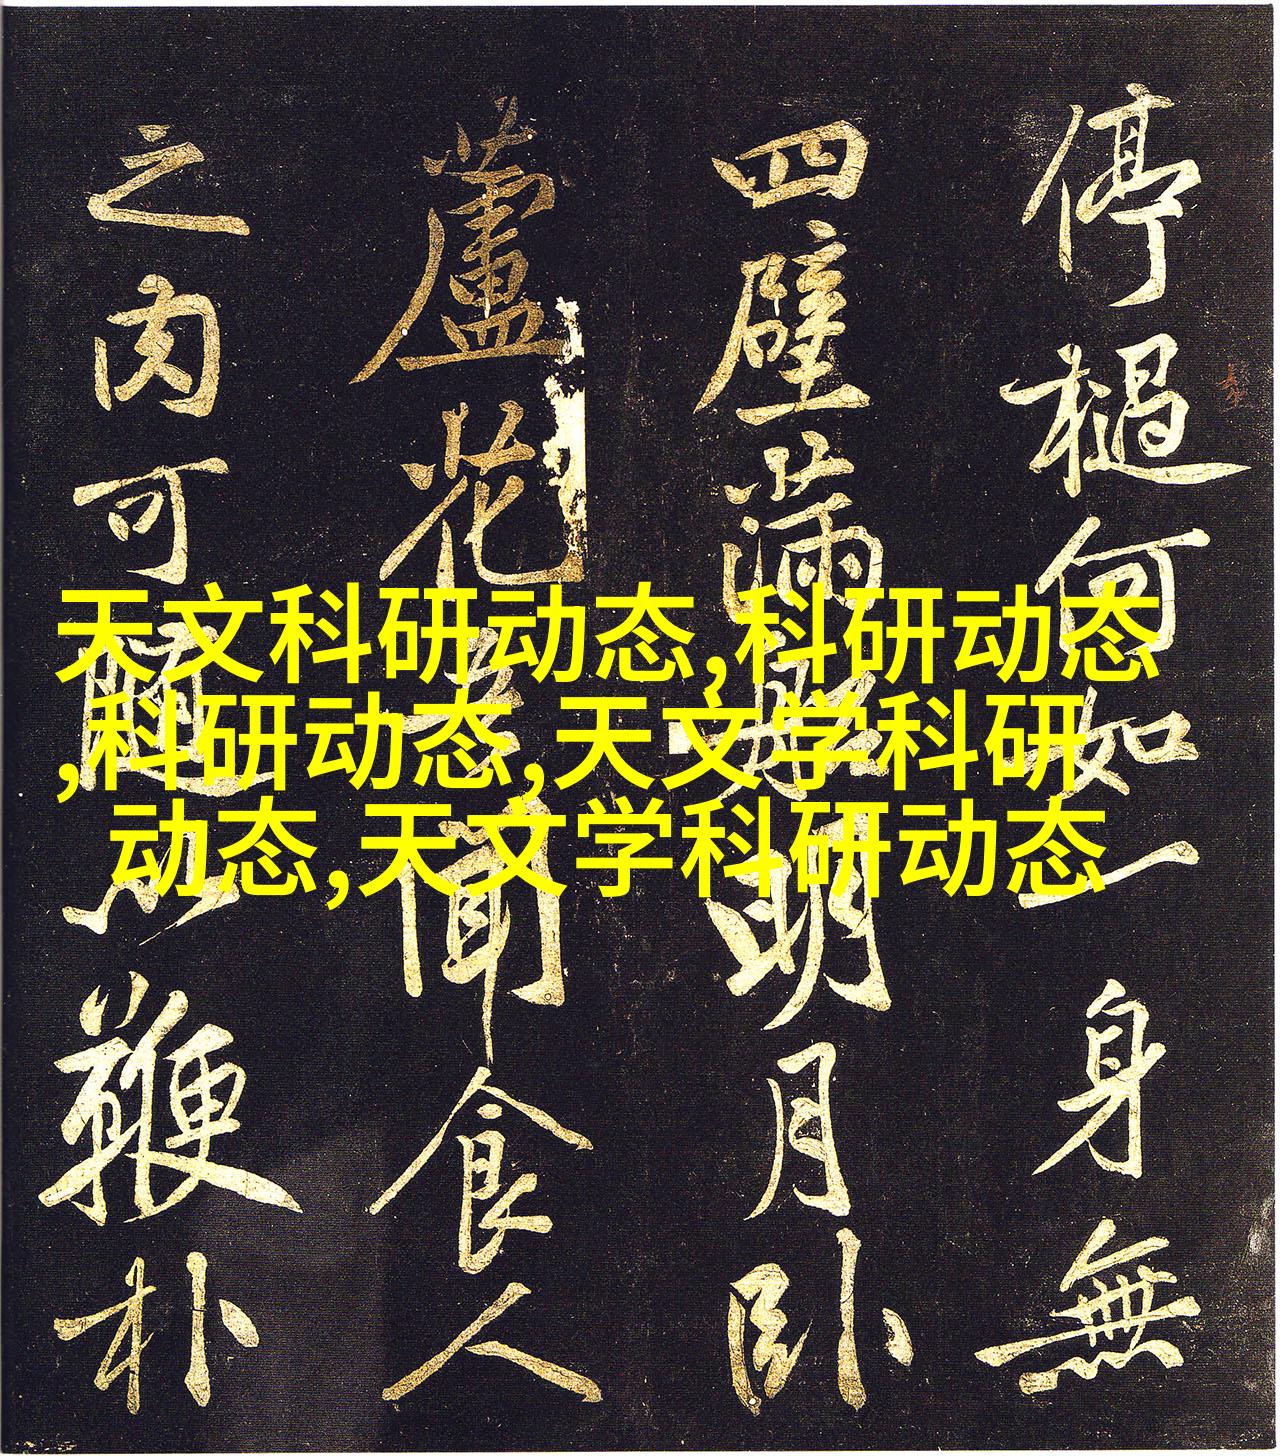 停檛何如一身無
四壁滿明月臥
蘆花聞食人
之肉可隨以鞭朴
天文科研动态,科研动态
,科研动态,天文学科研
动态,天文学科研动态